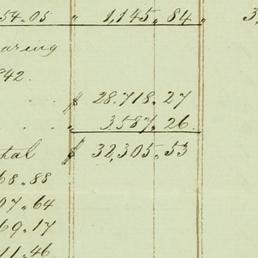 54.05 " 1,145.84 " 3,
aring
842.
. . . $ 28.718.27
. . . " 3.587.26
tal $ 32,305.53
68.88
07.64
69.17
11.46